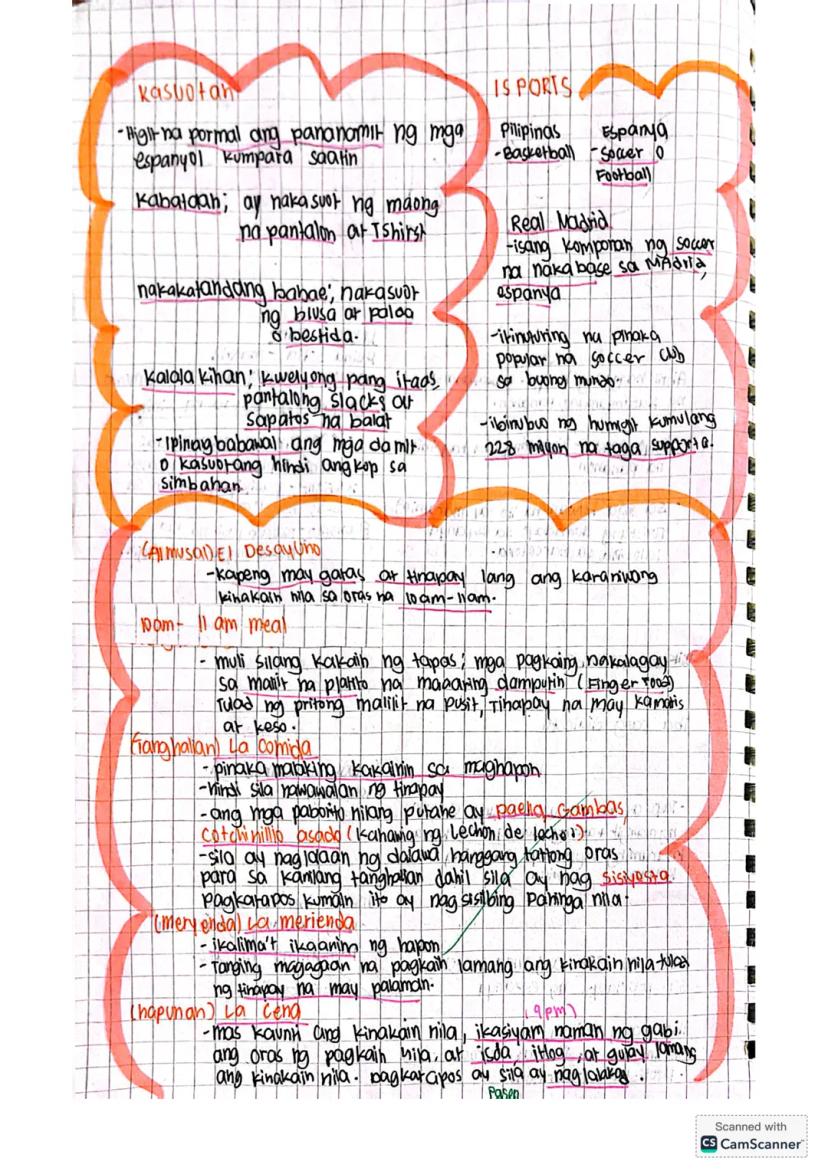 Kasuotan
-Higit na pormal ang pananamit ng mga
espanyol kumpara saatin
Kabataan; ay nakasuot ng maong
na pantalon at Tshirst
nakakatandang babae; nakasuot
ng blusa at palda
o bestida.
Kalalakihan; kwelyong pang itaas,
pantalong slacks at
sapatos na balat
-Ipinagbabawal ang mga damit
o kasuotang hindi angkop sa
simbahan
ISPORTS
Pilipinas
-Basketball
Espanya
-Soccer o
Football
Real Madrid
-isang komponan ng soccer
na naka base sa MAdrid,
espanya
-itinuturing na pinaka
popular na soccer club
sa buong mundo.
-ibinubuo ng humigit kumulang
228 milyon na taga supporta.
(Almusal) El Desayuno
-kapeng may gatas at tinapay lang ang karaniwang
kinakain nila sa oras na 10am-11am.
10am- 11 am meal
- muli silang kakain ng tapas; mga pagkaing nakalagay
sa maliit na platito na maaaring damputin (Finger Food)
Tulad ng pritong maliit na pusit, Tinapay na may kamatis
at keso.
(Tanghalian) La Comida
-pinaka malaking kakainin sa maghapon
-hindi sila nawawalan ng tinapay
-ang mga paborito nilang putahe ay paella, Gambas,
Cotchinillio asado (kahawig ng Lechon de leche)
-sila ay naglalaan ng dalawa hanggang tatlong oras
para sa kanilang tanghalian dahil sila ay nag sisiyesta
pagkatapos kumain ito ay nagsisilbing pahinga nila.
(meryenda) La merienda
- ikalima't ikaanim ng hapon
- Tanging magagaan na pagkain lamang ang kinakain nila tulad
ng tinapay na may palaman.
(hapunan) La Cena
(9pm)
-mas kaunti ang kinakain nila, ikasiyam naman ng gabi
ang oras ng pagkain nila, at isda, itlog, at gulay lamang
ang kinakain nila. pagkatapos ay sila ay naglalakad.
Paseo
Scanned with
CS CamScanner